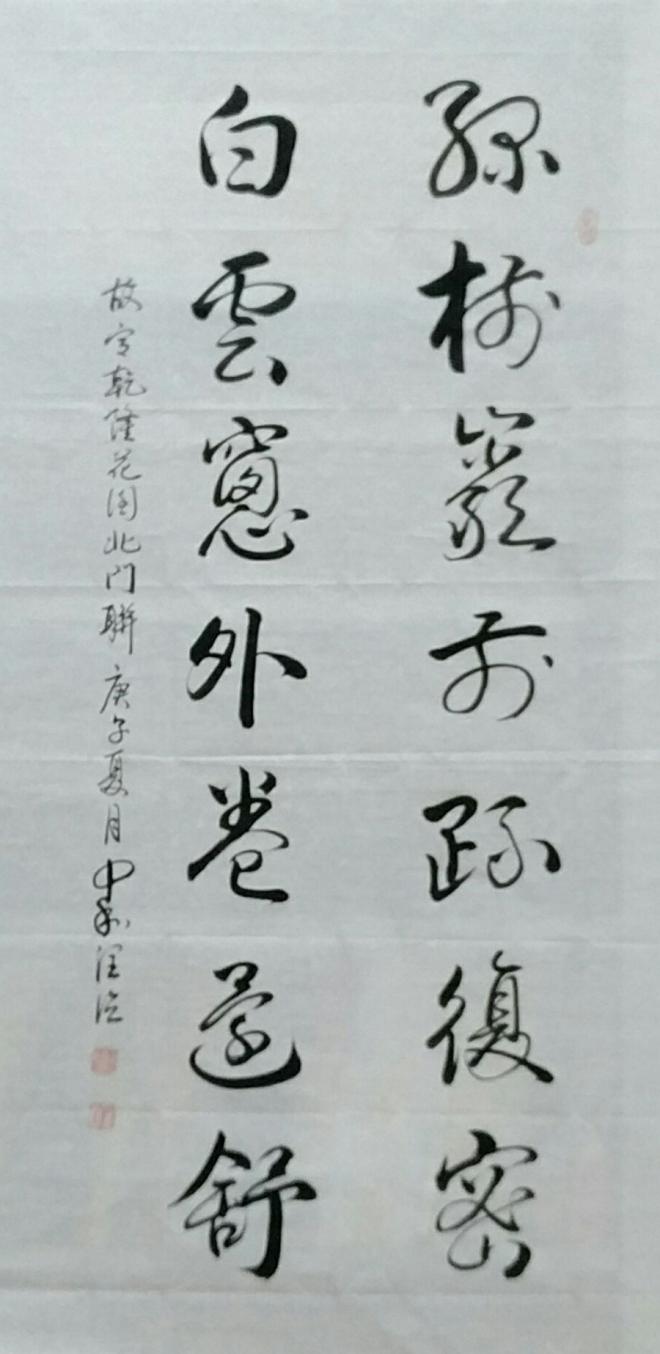 綠樹巖前疏復密
白雲窗外卷還舒
故宮乾隆花園北門聯 庚子夏月